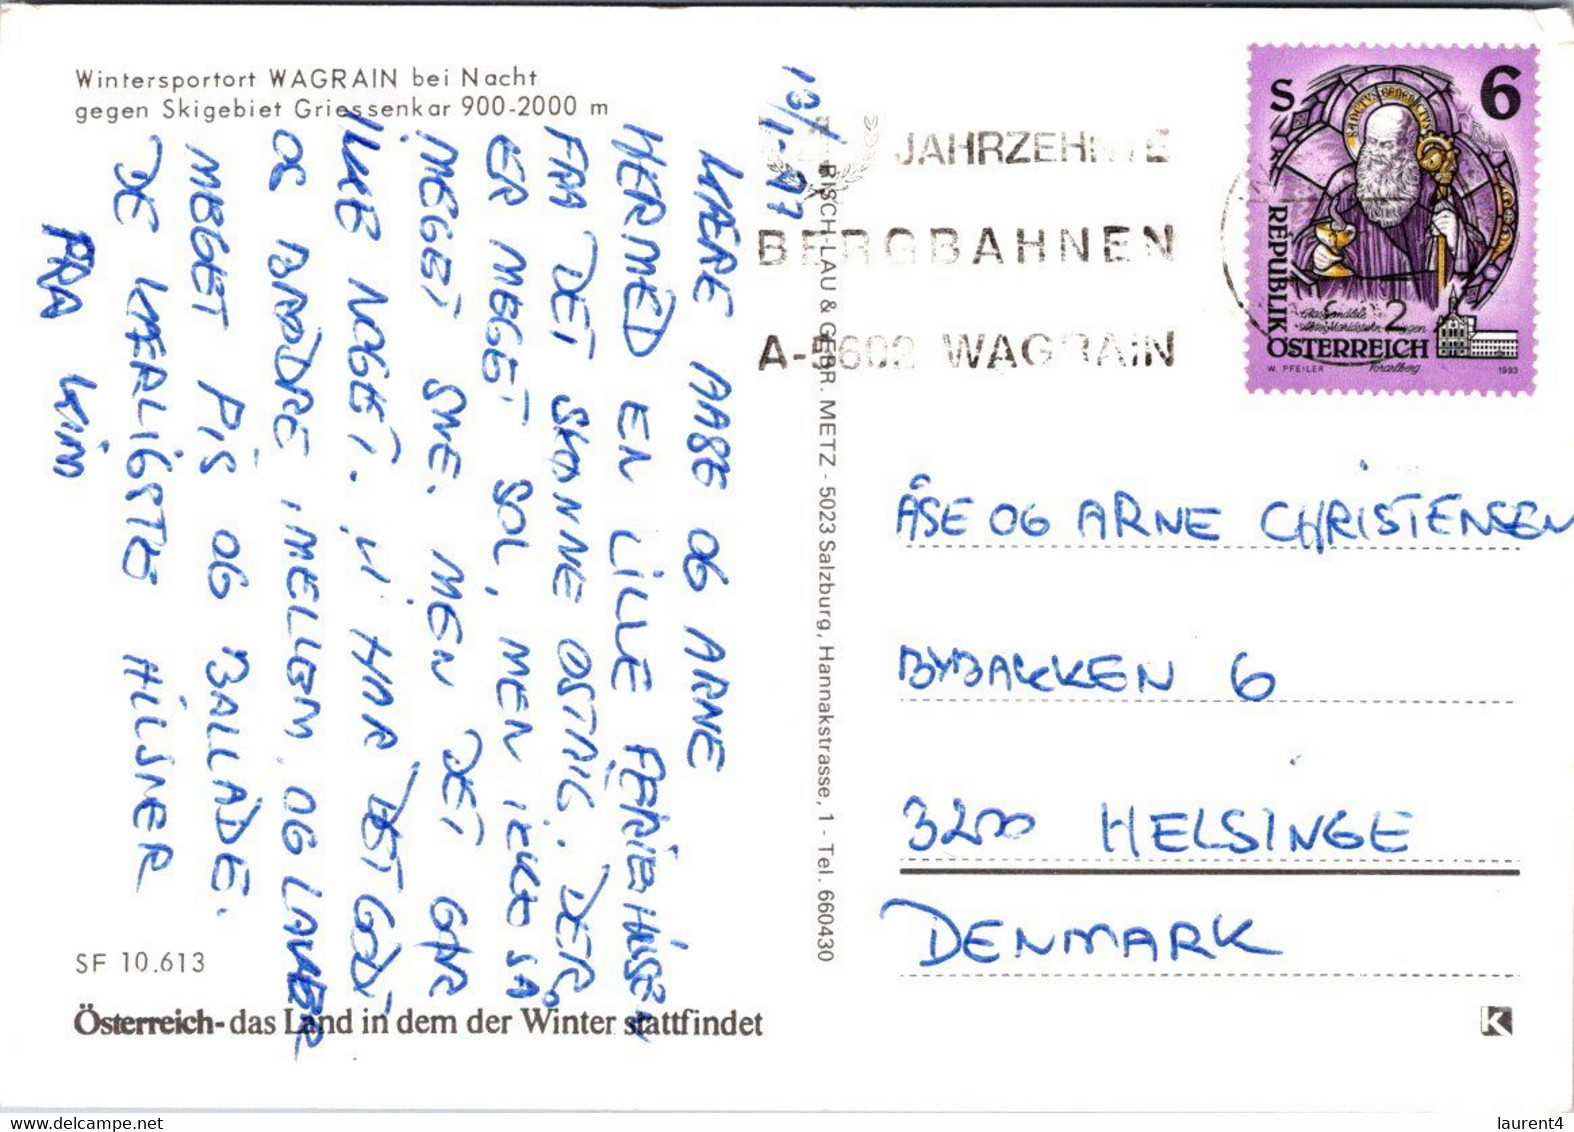 Wintersportort WAGRAIN bei Nacht
gegen Skigebiet Griessenkar 900-2000 m
13/1-97
KÆRE AASE OG ARNE
HERMED EN LILLE FERIEHILSEN
FRA DET SKØNNE ØSTRIG. DER
ER MEGET SOL, MEN IKKE SÅ
MEGET SNE. MEN DET GØR
IKKE NOGET. VI HAR DET GODT
OG BRØDRE, IMELLEM OG LAVER
MEGET PIS OG BALLADE.
DE KÆRLIGSTE HILSNER
FRA KIM
SF 10.613
Österreich-das Land in dem der Winter stattfindet
RISCH-LAU & GEBR. METZ - 5023 Salzburg, Hannakstrasse, 1 - Tel. 660430
4 JAHRZEHNTE
BERGBAHNEN
A-5602 WAGRAIN
S 6
SANCTUS BENEDICTUS
REPUBLIK
ÖSTERREICH
W. PFEILER
Vorarlberg
1993
ÅSE OG ARNE CHRISTENSEN
BYBAKKEN 6
3200 HELSINGE
DENMARK
K
laurent4